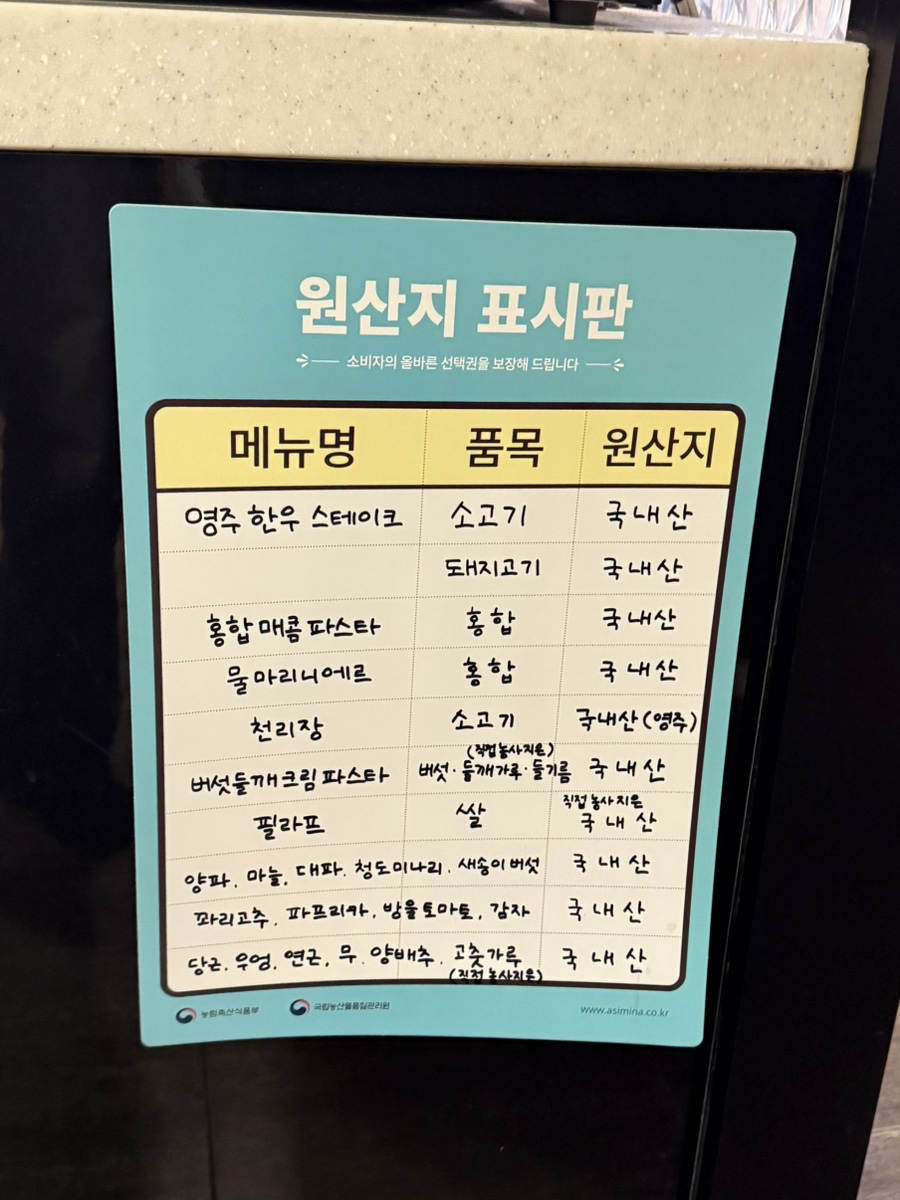 원산지 표시판
소비자의 올바른 선택권을 보장해 드립니다
메뉴명 품목 원산지
영주 한우 스테이크 소고기 국내산
돼지고기 국내산
홍합 매콤 파스타 홍합 국내산
물마리니에르 홍합 국내산
천리장 소고기 국내산(영주)
(직접농사지은)
버섯들깨크림파스타 버섯·들깨가루·들기름 국내산
직접농사지은
필라프 쌀 국내산
양파, 마늘, 대파, 청도미나리, 새송이버섯 국내산
꽈리고추, 파프리카, 방울토마토, 감자 국내산
당근, 우엉, 연근, 무, 양배추, 고춧가루 국내산
(직접농사지은)
농림축산식품부 국립농산물품질관리원 www.asimina.co.kr